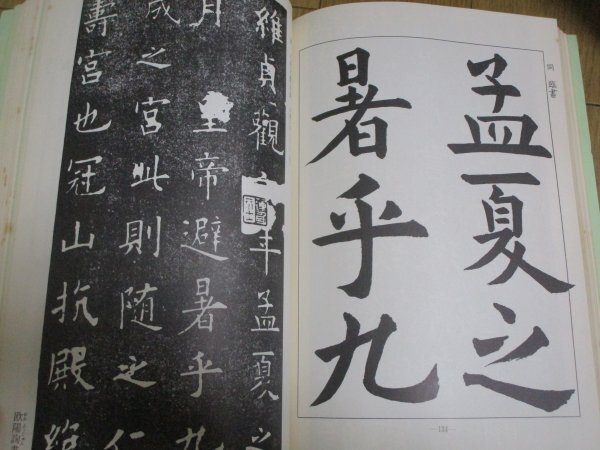 同 臨書
孟夏之
暑乎九
維貞觀年孟夏之
月皇帝避暑乎九
成之宮此則随之仁
壽宮也冠山抗殿絶
欧陽詢